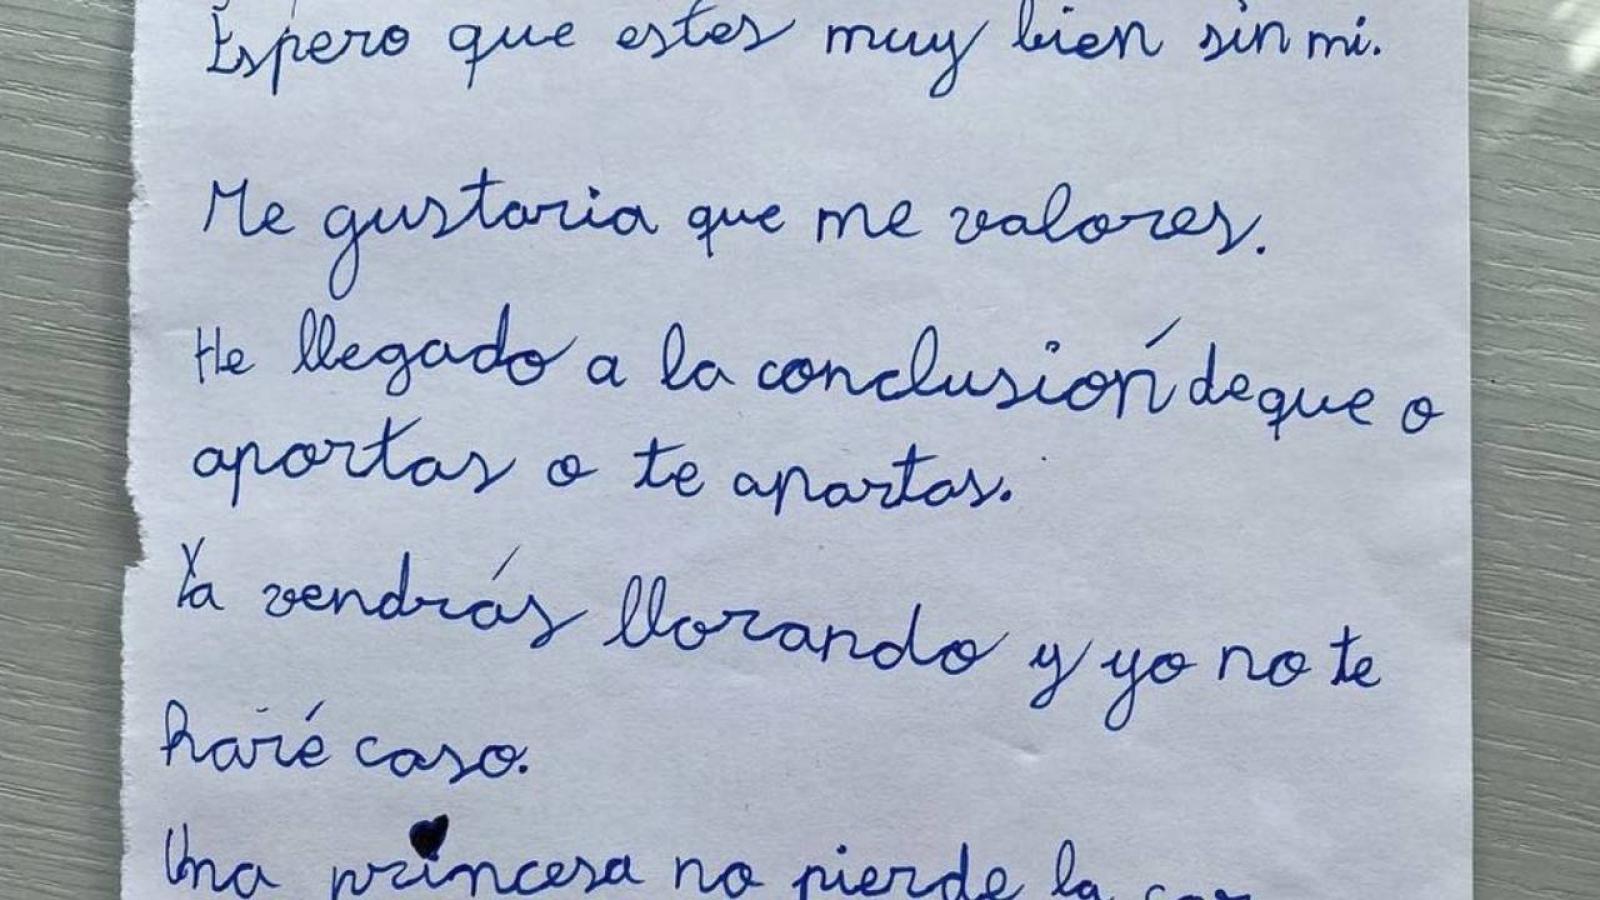 Espero que estes muy bien sin mi.
Me gustaria que me valores.
He llegado a la conclusión de que o
aportas o te apartas.
Ya vendrás llorando y yo no te
haré caso.
Una princesa no pierde la